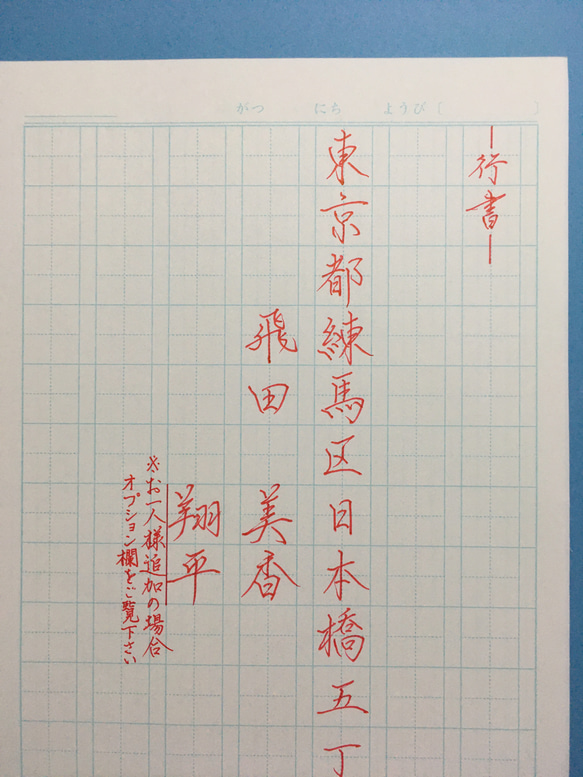 がつ にち ようび〔 〕
―行書―
東京都練馬区日本橋五丁
飛田 美香
翔平
※お一人様追加の場合
オプション欄をご覧下さい